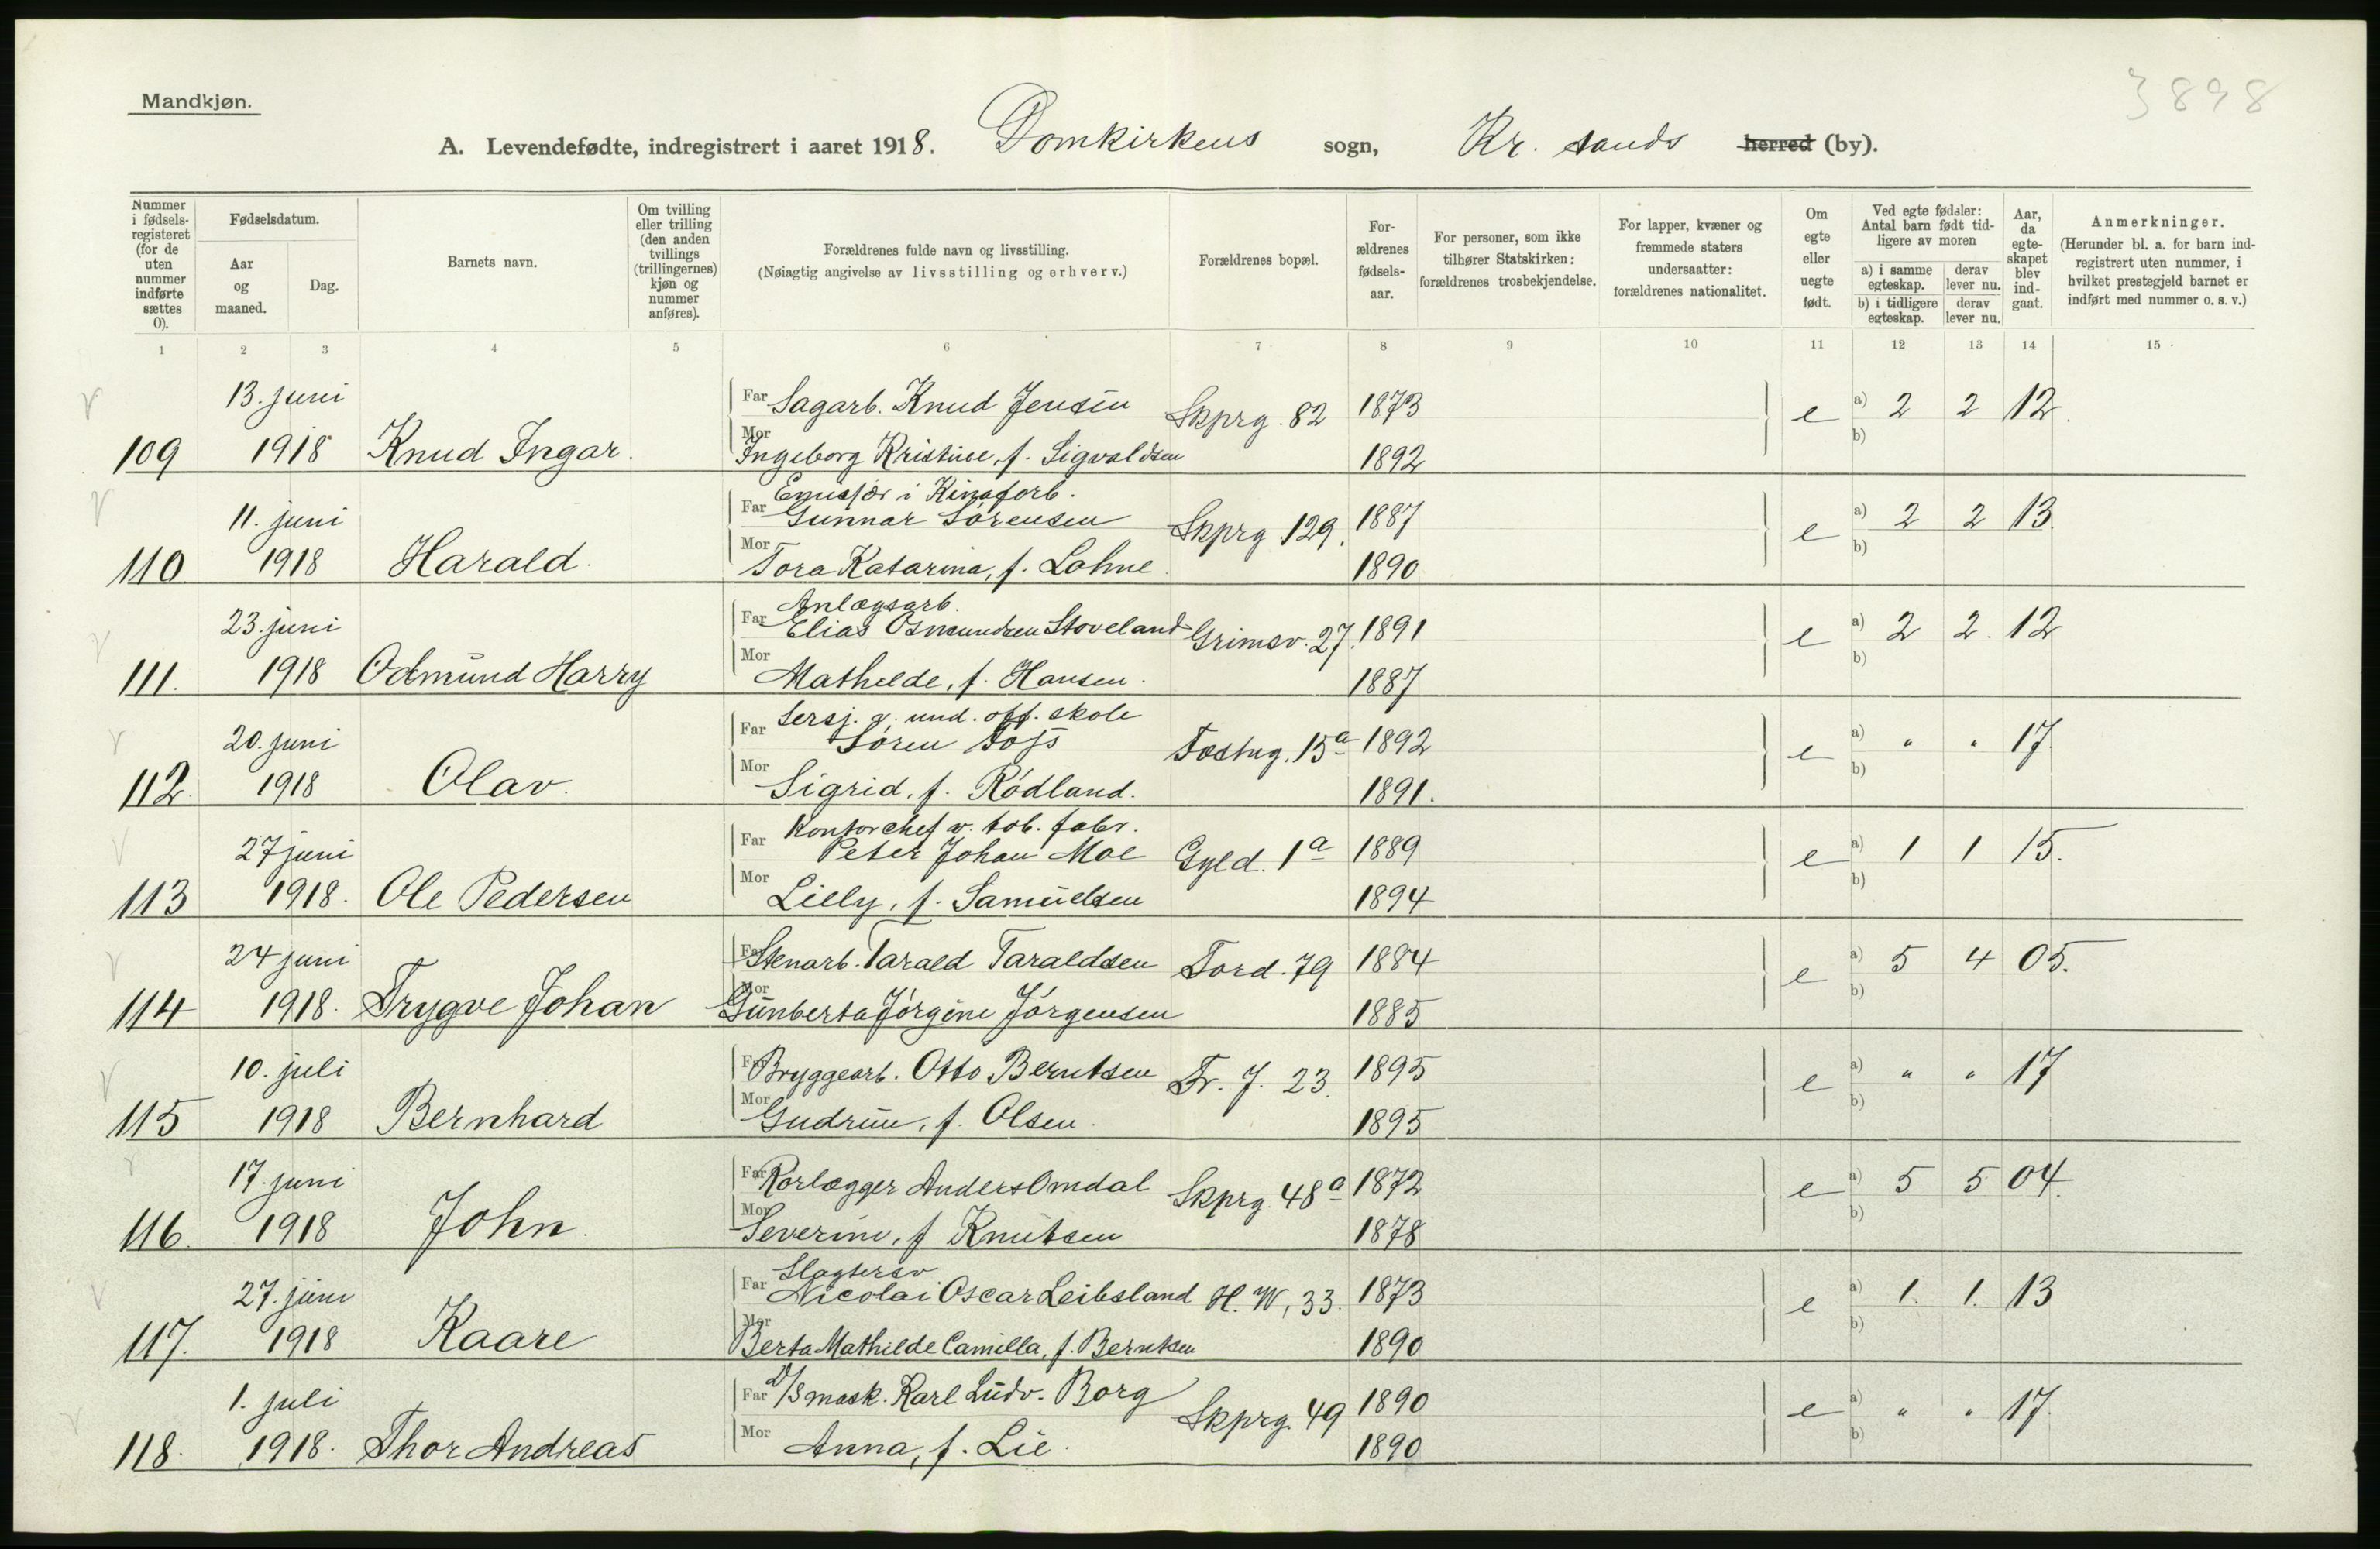 3898
Mandkjøn.
A. Levendefødte, indregistrert i aaret 1918. Domkirkens sogn, Kr. sands herred (by).
Nummer i fødsels-registeret (for de uten nummer indførte sættes 0).
Fødselsdatum.
Aar og maaned.
Dag.
Barnets navn.
Om tvilling eller trilling (den anden tvillings (trillingernes) kjøn og nummer anføres).
Forældrenes fulde navn og livsstilling.
(Nøiagtig angivelse av livsstilling og erhverv.)
Forældrenes bopæl.
For-ældrenes fødsels-aar.
For personer, som ikke tilhører Statskirken: forældrenes trosbekjendelse.
For lapper, kvæner og fremmede staters undersaatter: forældrenes nationalitet.
Om egte eller uegte født.
Ved egte fødsler: Antal barn født tid-ligere av moren
a) i samme egteskap. derav lever nu.
b) i tidligere egteskap. derav lever nu.
Aar, da egte-skapet blev ind-gaat.
Anmerkninger.
(Herunder bl. a. for barn ind-registrert uten nummer, i hvilket prestegjeld barnet er indført med nummer o. s. v.)
1 2 3 4 5 6 7 8 9 10 11 12 13 14 15
13. juni Far Sagarb. Knud Jensen Skprg. 82 1873 e a) 2 2 12
109 1918 Knud Ingar. Mor Ingeborg Kristine, f. Sigvaldsen 1892 b)
11. juni Far Gunnar Sörensen Skprg 129. 1887 e a) 2 2 13
110 1918 Harald. Mor Tora Katarina, f. Lohne 1890 b)
Anlægsarb.
23. juni Far Elias Osmundsen Stoveland Grimsv. 27. 1891 e a) 2 2. 12
111. 1918 Odmund Harry Mor Mathilde, f. Hansen. 1887 b)
Sersj. v. und. off. skole
20. juni Far Sören Tofs Tostug. 15a 1892 e a) " " 17
112. 1918 Olav. Mor Sigrid, f. Rödland. 1891. b)
Kontorchef v. tob. fabr.
27 juni Far Peter Johan Moe Gyld. 1a 1889 e a) 1 1 15.
113 1918. Ole Pedersen Mor Lilly, f. Samuelsen 1894 b)
24 juni Far Stenarb. Tarald Taraldsen Tord. 79 1884 e a) 5 4 05.
114 1918. Trygve Johan Mor Gunberta Jörgine Jörgensen 1885 b)
10. juli Far Bryggearb. Otto Berntsen Tr. J. 23. 1895 e a) " " 17
115 1918 Bernhard Mor Gudrun, f. Olsen. 1895 b)
17. juni Far Rörlægger Anders Omdal Skprg. 48a 1872 e a) 5 5 04.
116. 1918 John. Mor Severine, f Knutsen 1878 b)
Slagtersv.
27. juni Far Nicolai Oscar Leibsland H. W, 33. 1873 e a) 1. 1. 13
117. 1918 Kaare Mor Berta Mathilde Camilla, f. Berntsen 1890 b)
1. juli Far D/S mask. Karl Ludv. Borg Skprg. 49 1890 e a) " " 17.
118. 1918. Thor Andreas Mor Anna, f. Lie. 1890 b)